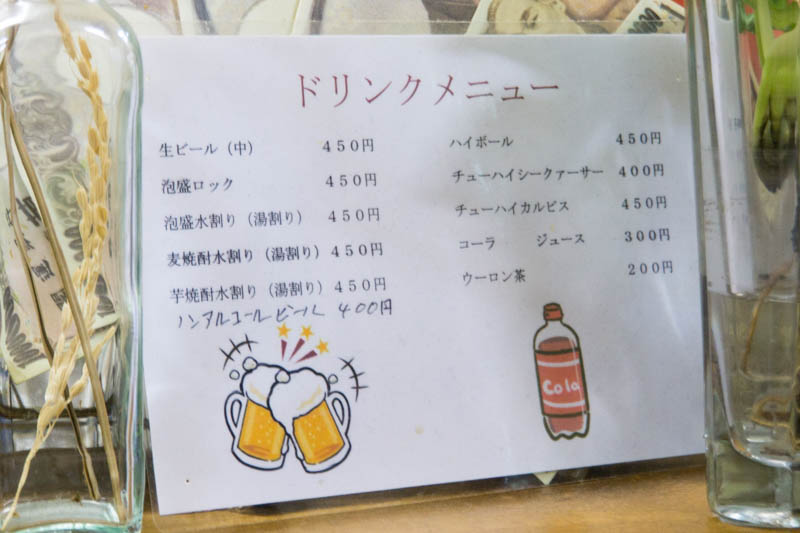 ドリンクメニュー
生ビール（中） ４５０円
泡盛ロック ４５０円
泡盛水割り（湯割り） ４５０円
麦焼酎水割り（湯割り） ４５０円
芋焼酎水割り（湯割り） ４５０円
ノンアルコールビール 400円
ハイボール ４５０円
チューハイシークァーサー ４００円
チューハイカルピス ４５０円
コーラ ジュース ３００円
ウーロン茶 ２００円
Cola